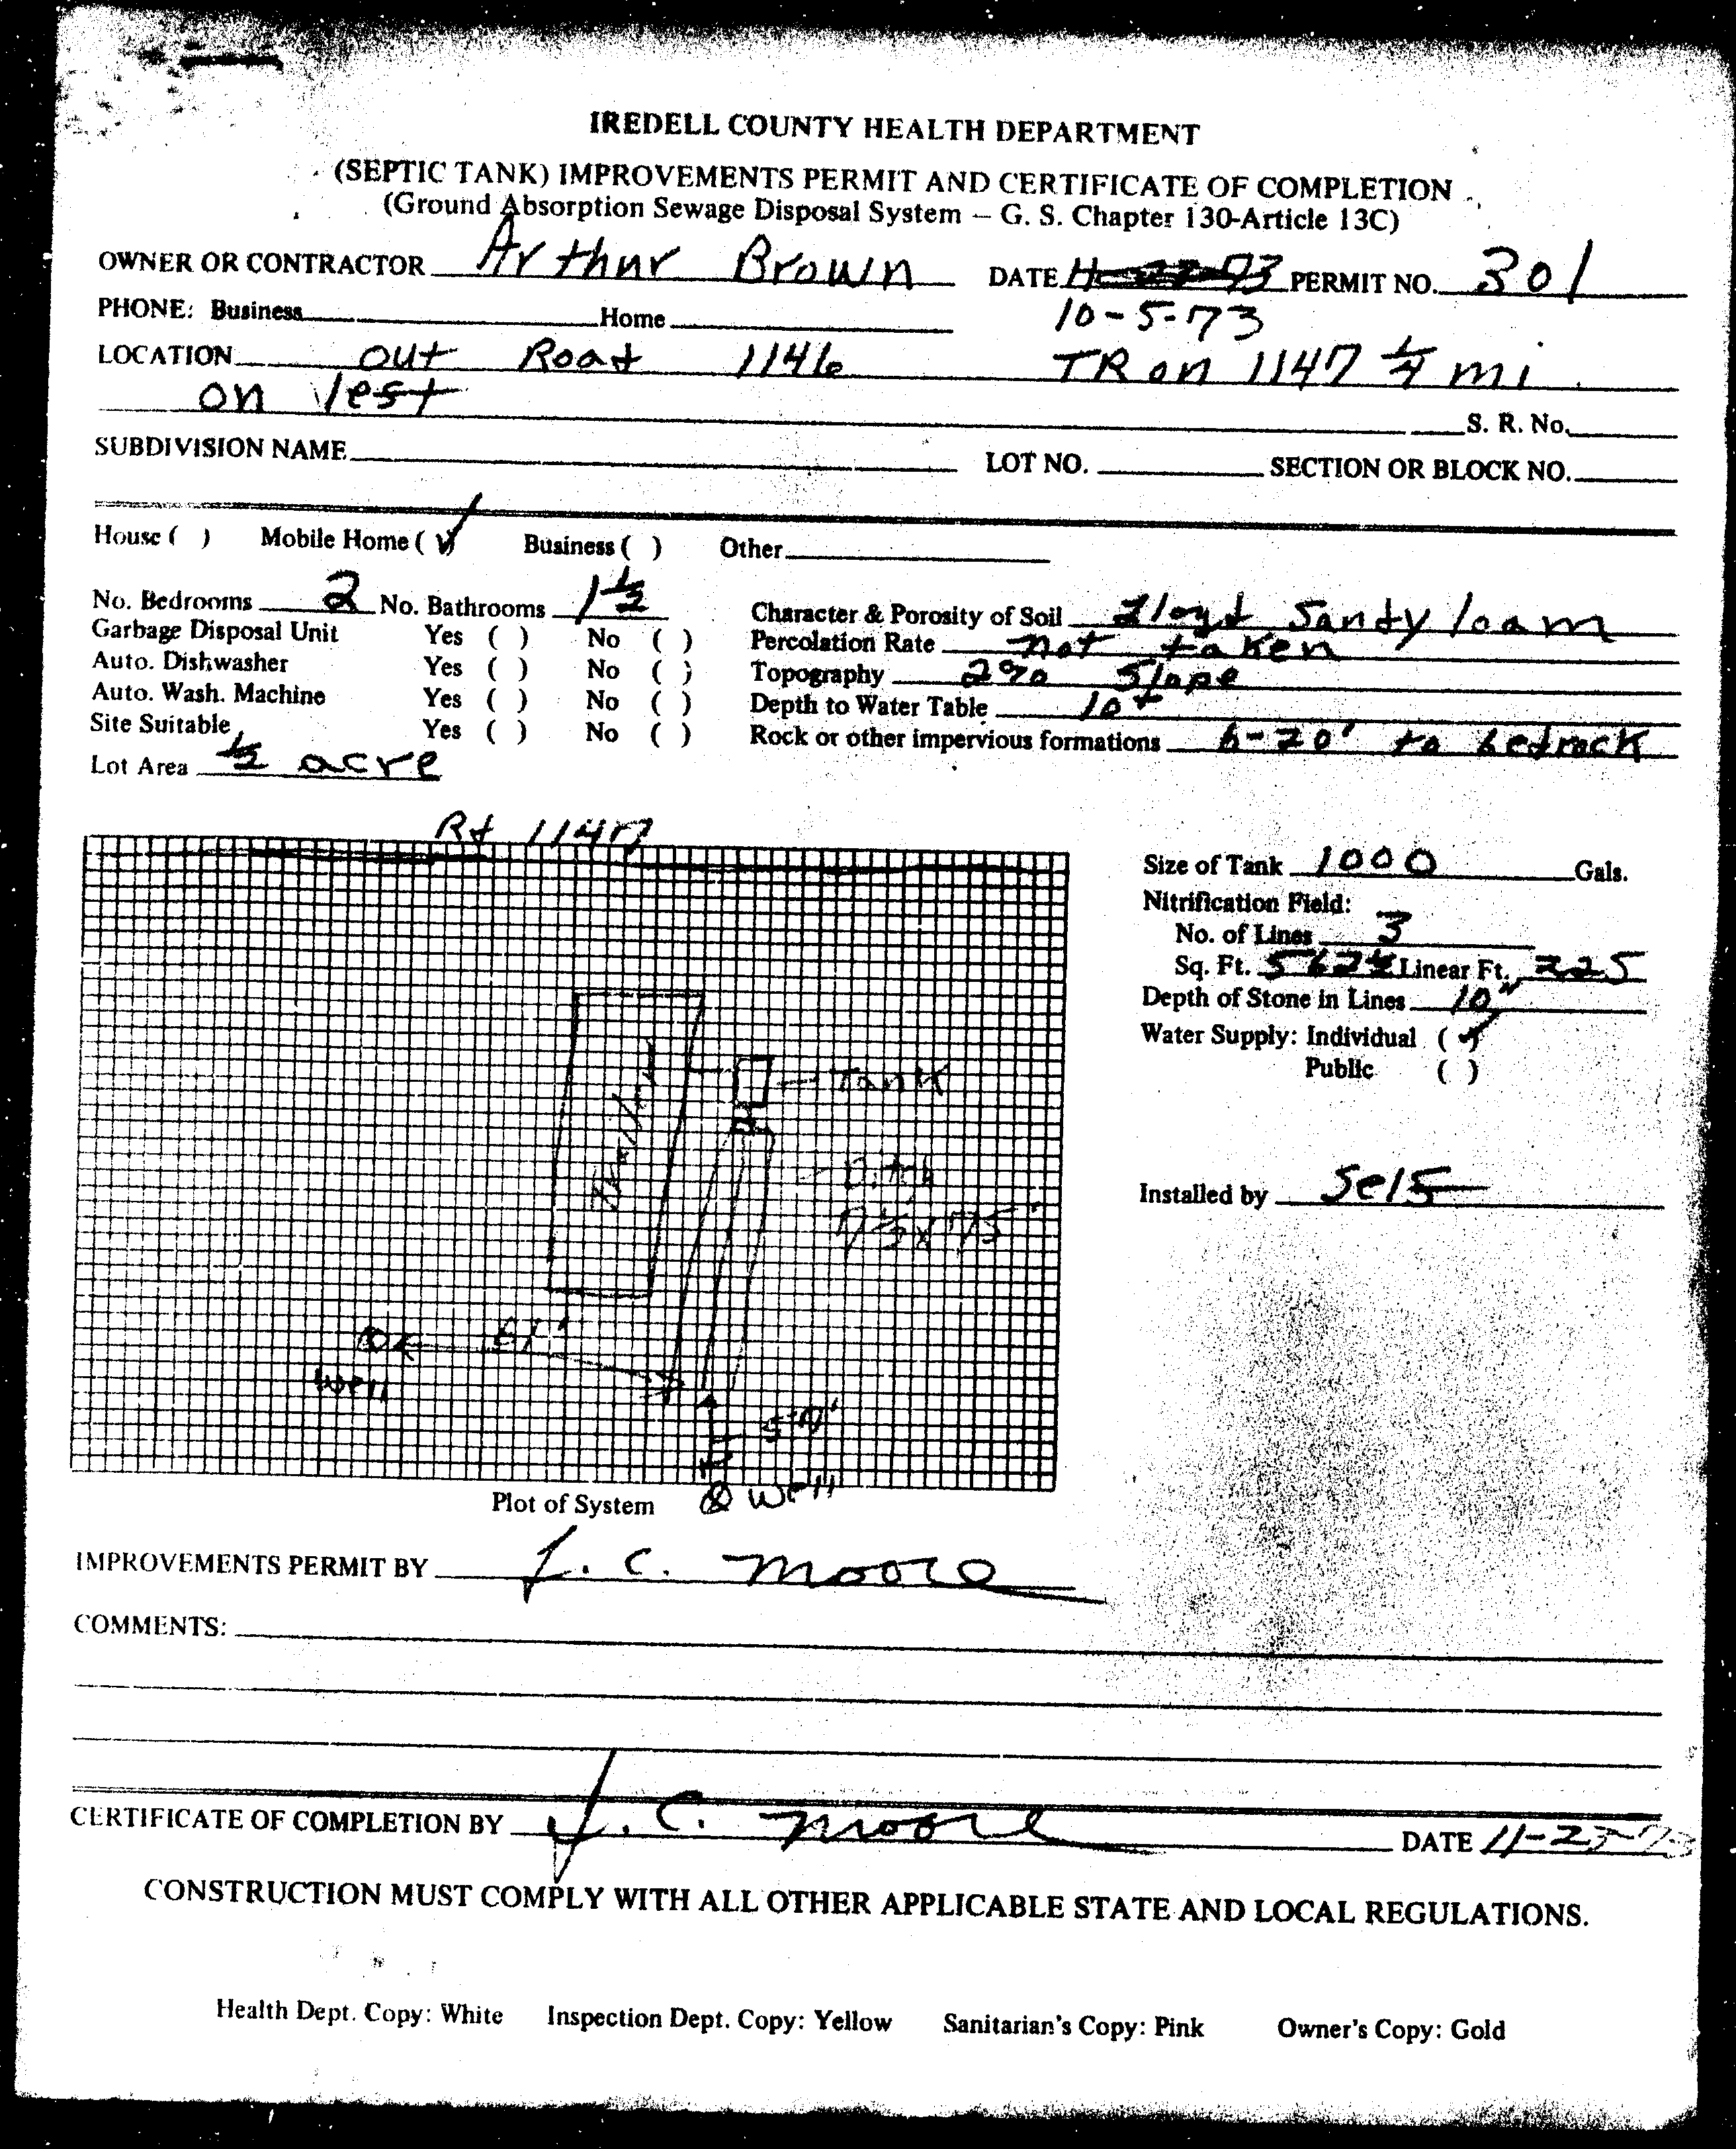 IREDELL COUNTY HEALTH DEPARTMENT
(SEPTIC TANK) IMPROVEMENTS PERMIT AND CERTIFICATE OF COMPLETION
(Ground Absorption Sewage Disposal System – G. S. Chapter 130-Article 13C)
OWNER OR CONTRACTOR Arthur Brown DATE 73 PERMIT NO. 301
PHONE: Business Home 10-5-73
LOCATION out Road 1146 TR on 1147 1/4 mi
on left
S. R. No.
SUBDIVISION NAME LOT NO. SECTION OR BLOCK NO.
House ( ) Mobile Home (✓) Business ( ) Other
No. Bedrooms 2 No. Bathrooms 1 1/2 Character & Porosity of Soil Lloyd Sandy loam
Garbage Disposal Unit Yes ( ) No ( ) Percolation Rate not taken
Auto. Dishwasher Yes ( ) No ( ) Topography 2% Slope
Auto. Wash. Machine Yes ( ) No ( ) Depth to Water Table 10+
Site Suitable Yes ( ) No ( ) Rock or other impervious formations 6-20' to bedrock
Lot Area 1/2 acre
Rt 1147
Size of Tank 1000 Gals.
Nitrification Field:
No. of Lines 3
Sq. Ft. 562 1/2 Linear Ft. 225
Depth of Stone in Lines 10"
Water Supply: Individual (✓)
Public ( )
Tank
Ditch
Installed by Self
61'
Well
Well
Plot of System
IMPROVEMENTS PERMIT BY J. C. Moore
COMMENTS:
CERTIFICATE OF COMPLETION BY J. C. Moore DATE 11-23-73
CONSTRUCTION MUST COMPLY WITH ALL OTHER APPLICABLE STATE AND LOCAL REGULATIONS.
Health Dept. Copy: White Inspection Dept. Copy: Yellow Sanitarian's Copy: Pink Owner's Copy: Gold